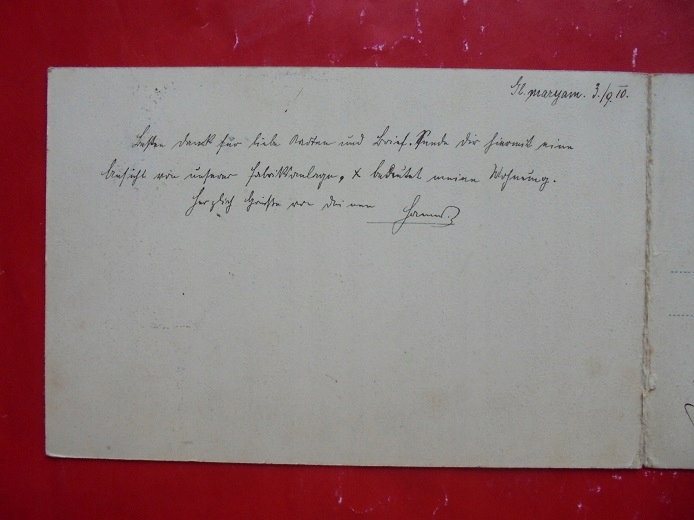 Gl. maryam. 3./9. 10.
Besten Dank für liebe Karten und Brief. Sende Dir hiermit eine
Ansicht von unserer Fabriksanlage, x bedeutet meine Wohnung.
Herzlich Grüsse von deinem Hanns.